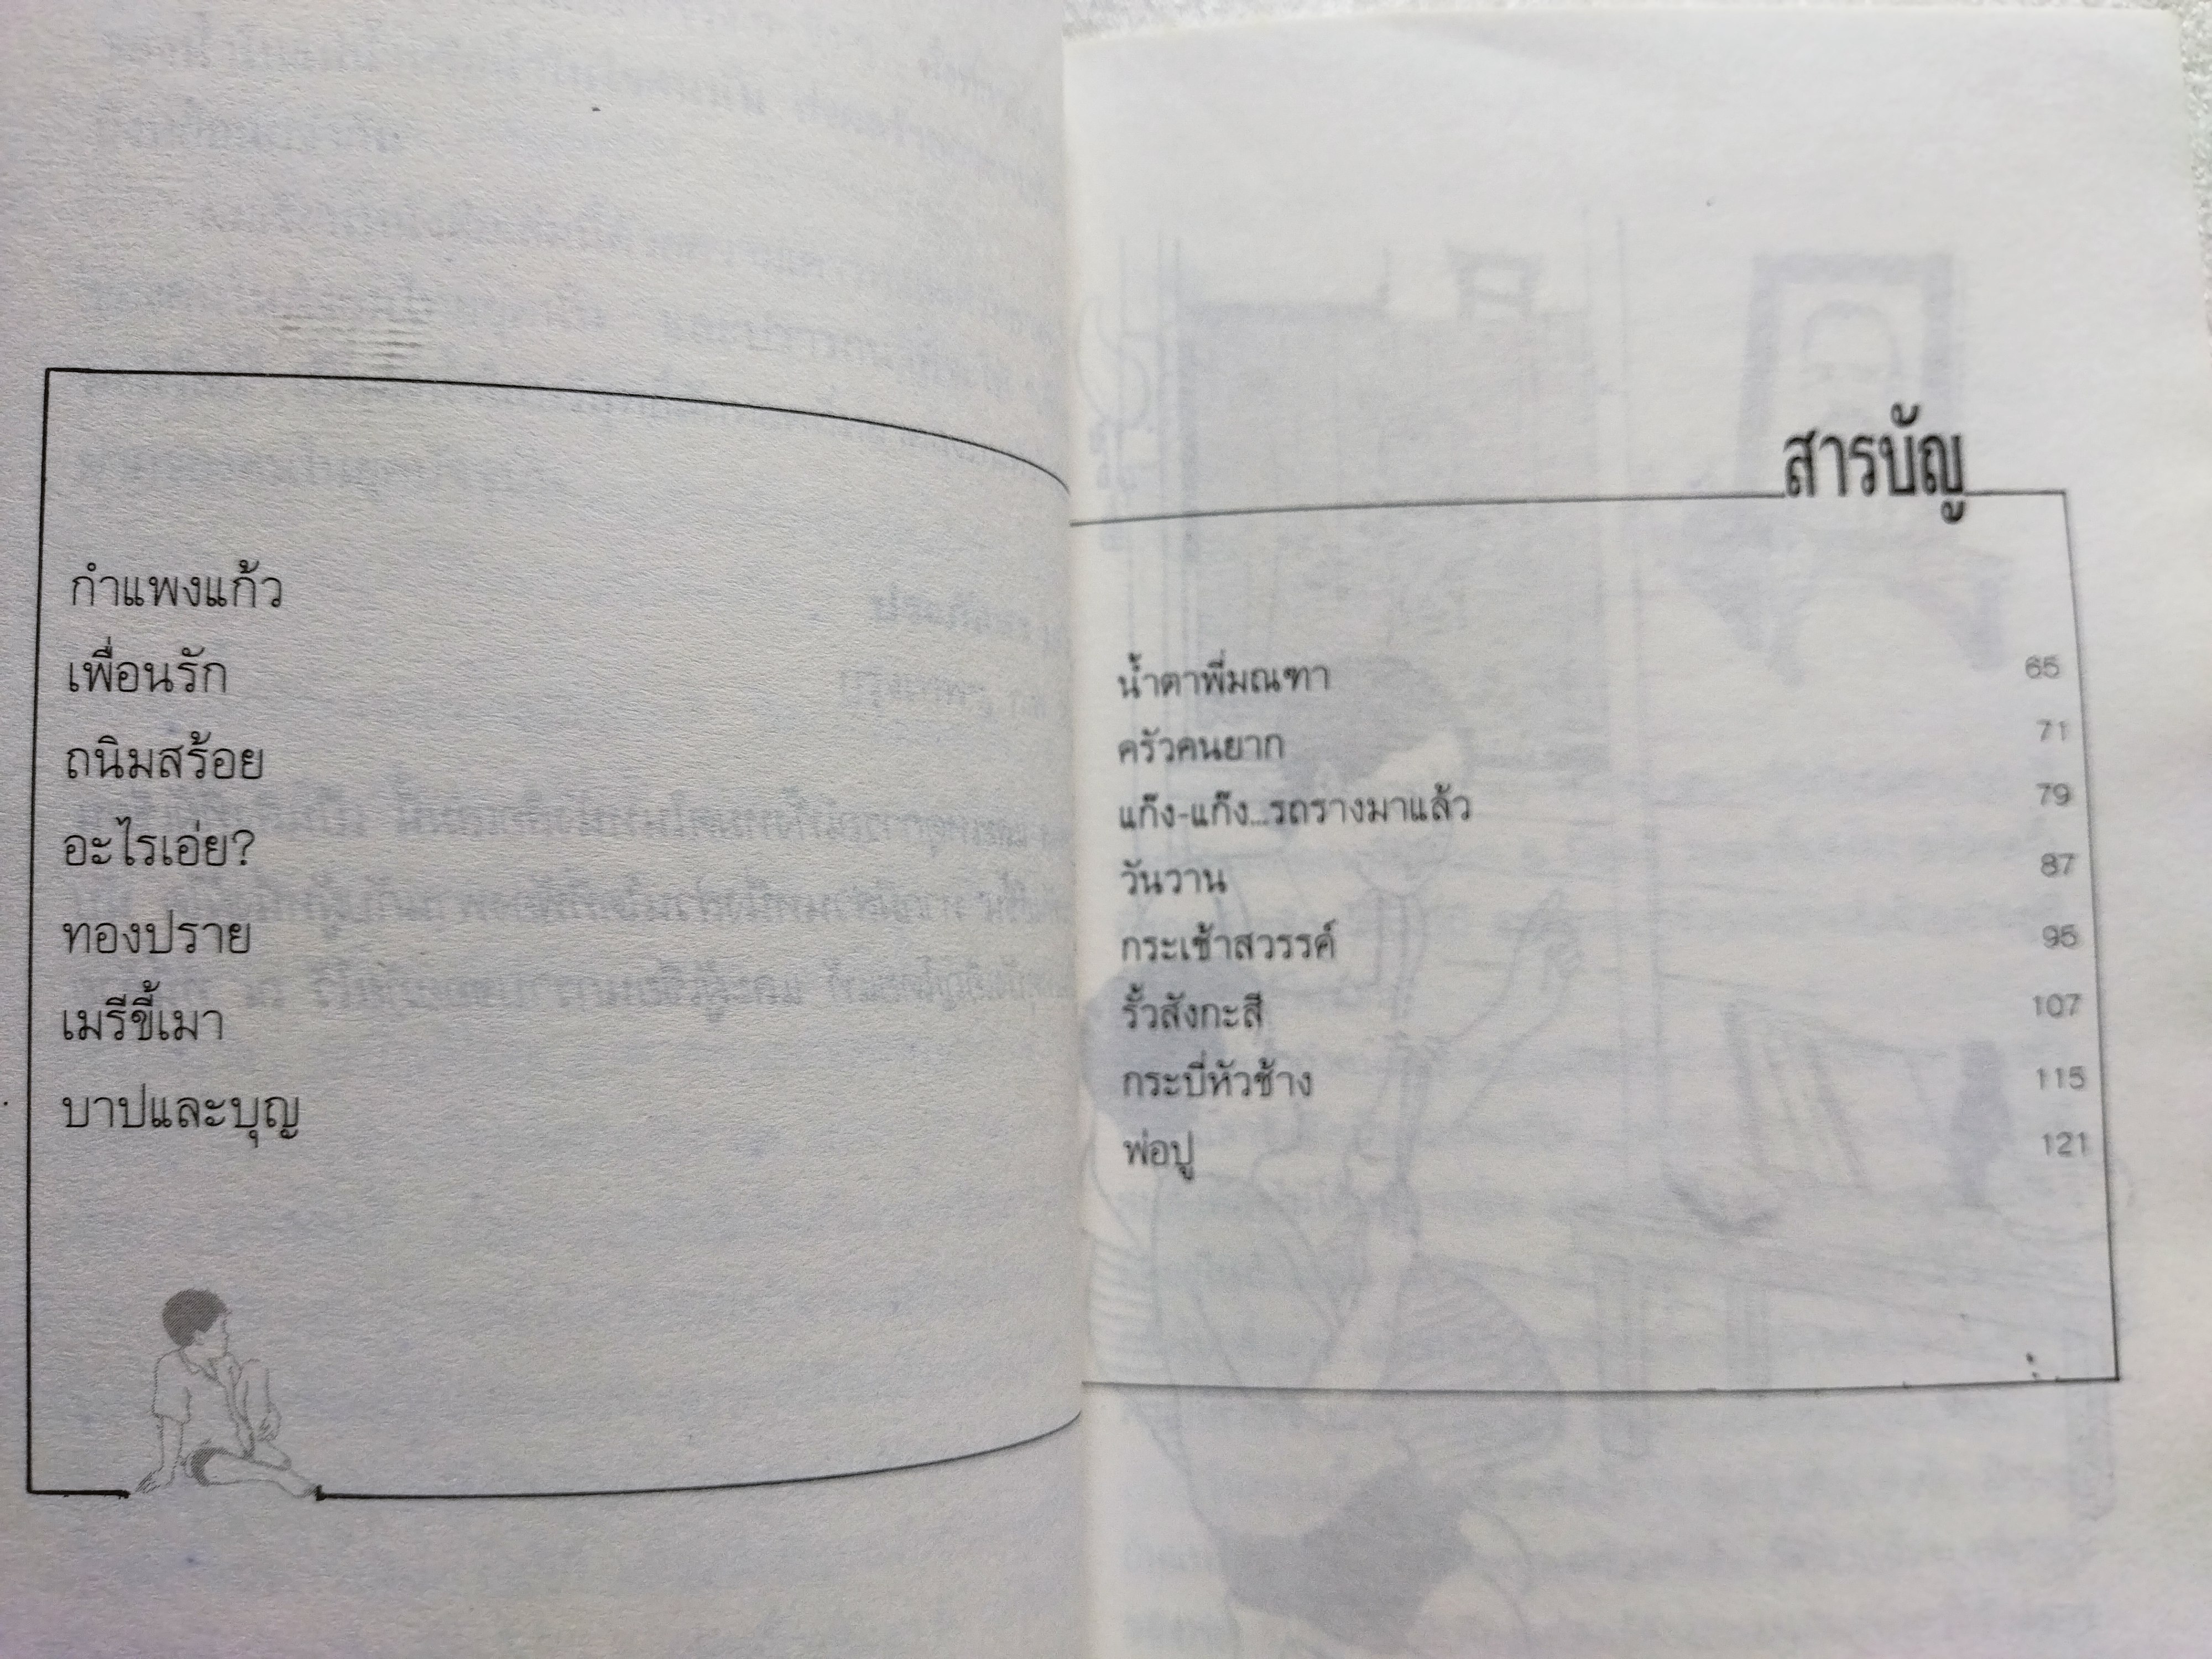 กำแพงแก้ว
เพื่อนรัก
ถนิมสร้อย
อะไรเอ่ย?
ทองปราย
เมรีขี้เมา
บาปและบุญ
สารบัญ
น้ำตาพี่มณฑา 65
ครัวคนยาก 71
แก๊ง-แก๊ง...รถรางมาแล้ว 79
วันวาน 87
กระเช้าสวรรค์ 95
รั้วสังกะสี 107
กระบี่หัวช้าง 115
พ่อปู 121